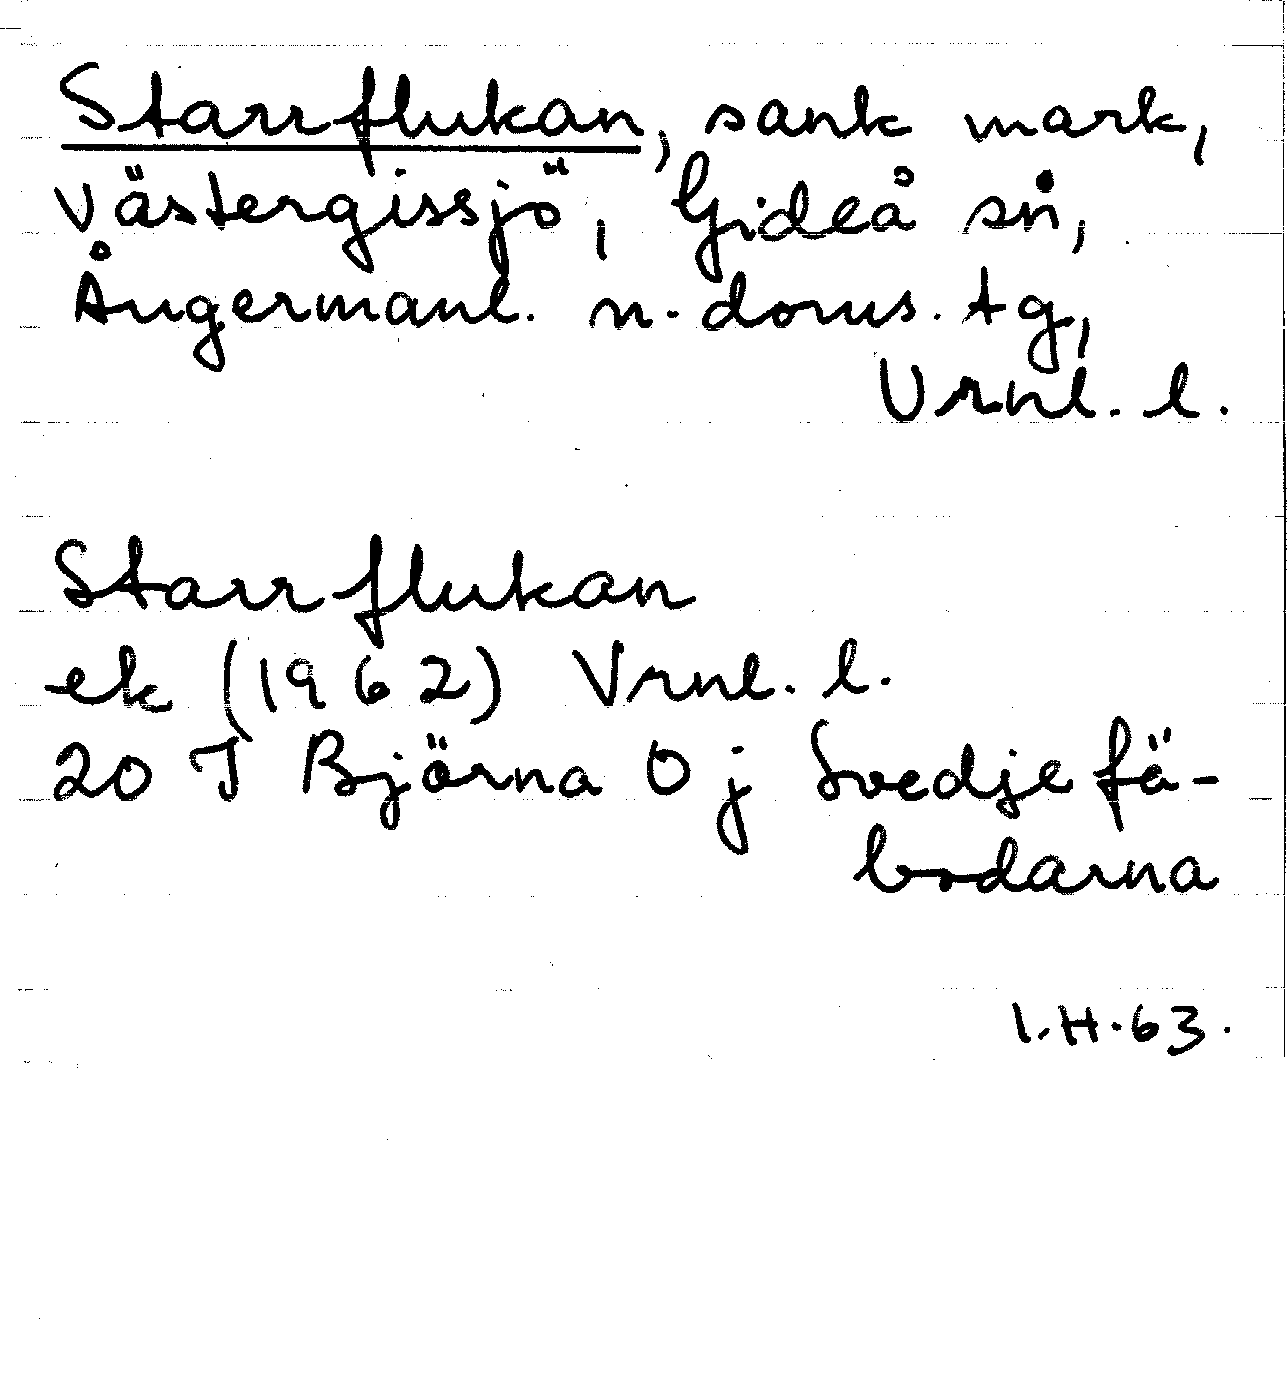 Starrflukan, sank mark,
Västergissjö, Gideå sn,
Ångermanl. n. doms. tg,
Vrnl. l.
Starrflukan
ek (1962) Vrnl. l.
20 I Björna O j Svedjefä-
bodarna
I.H.63.